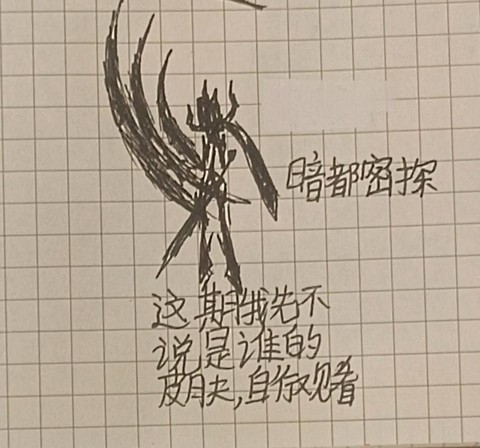 暗都密探
这期俄先不
说是谁的
皮肤,自你观看